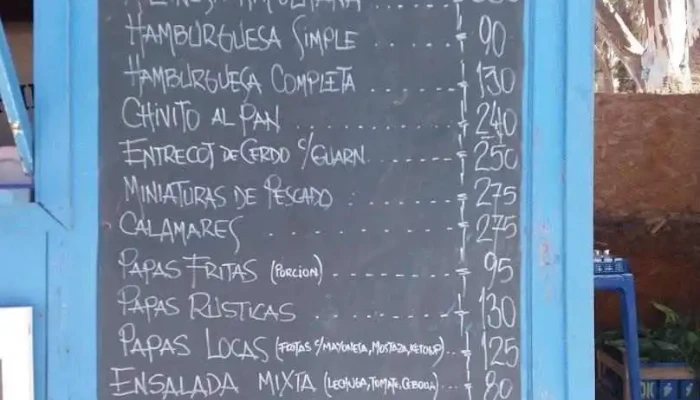 NAPOLITANA
HAMBURGUESA SIMPLE ...... $ 90
HAMBURGUESA COMPLETA ...... $ 130
CHIVITO AL PAN ............ $ 240
ENTRECOT DE CERDO C/GUARN. ........ $ 250
MINIATURAS DE PESCADO .......... $ 275
CALAMARES ............ $ 275
PAPAS FRITAS (PORCION) .......... $ 95
PAPAS RUSTICAS ............ $ 130
PAPAS LOCAS (FRITAS C/MAYONESA, MOSTAZA, KETCHUP)... $ 125
ENSALADA MIXTA (LECHUGA, TOMATE, CEBOLLA)... $ 80